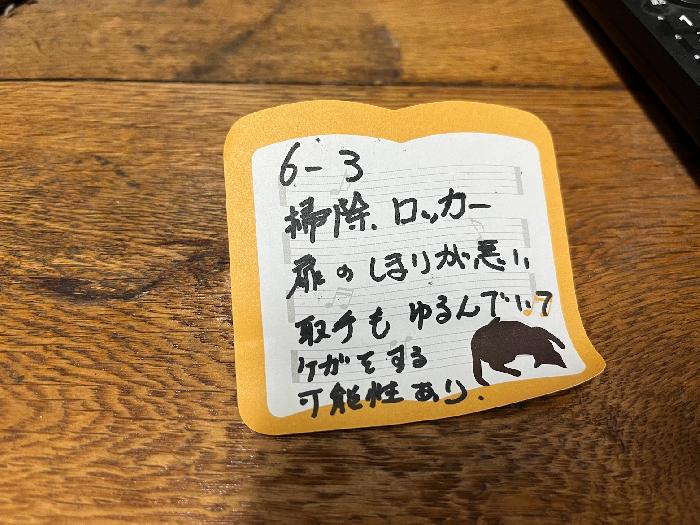 6-3
掃除ロッカー
扉のしまりが悪い、
取手もゆるんでいて
ケガをする
可能性あり.